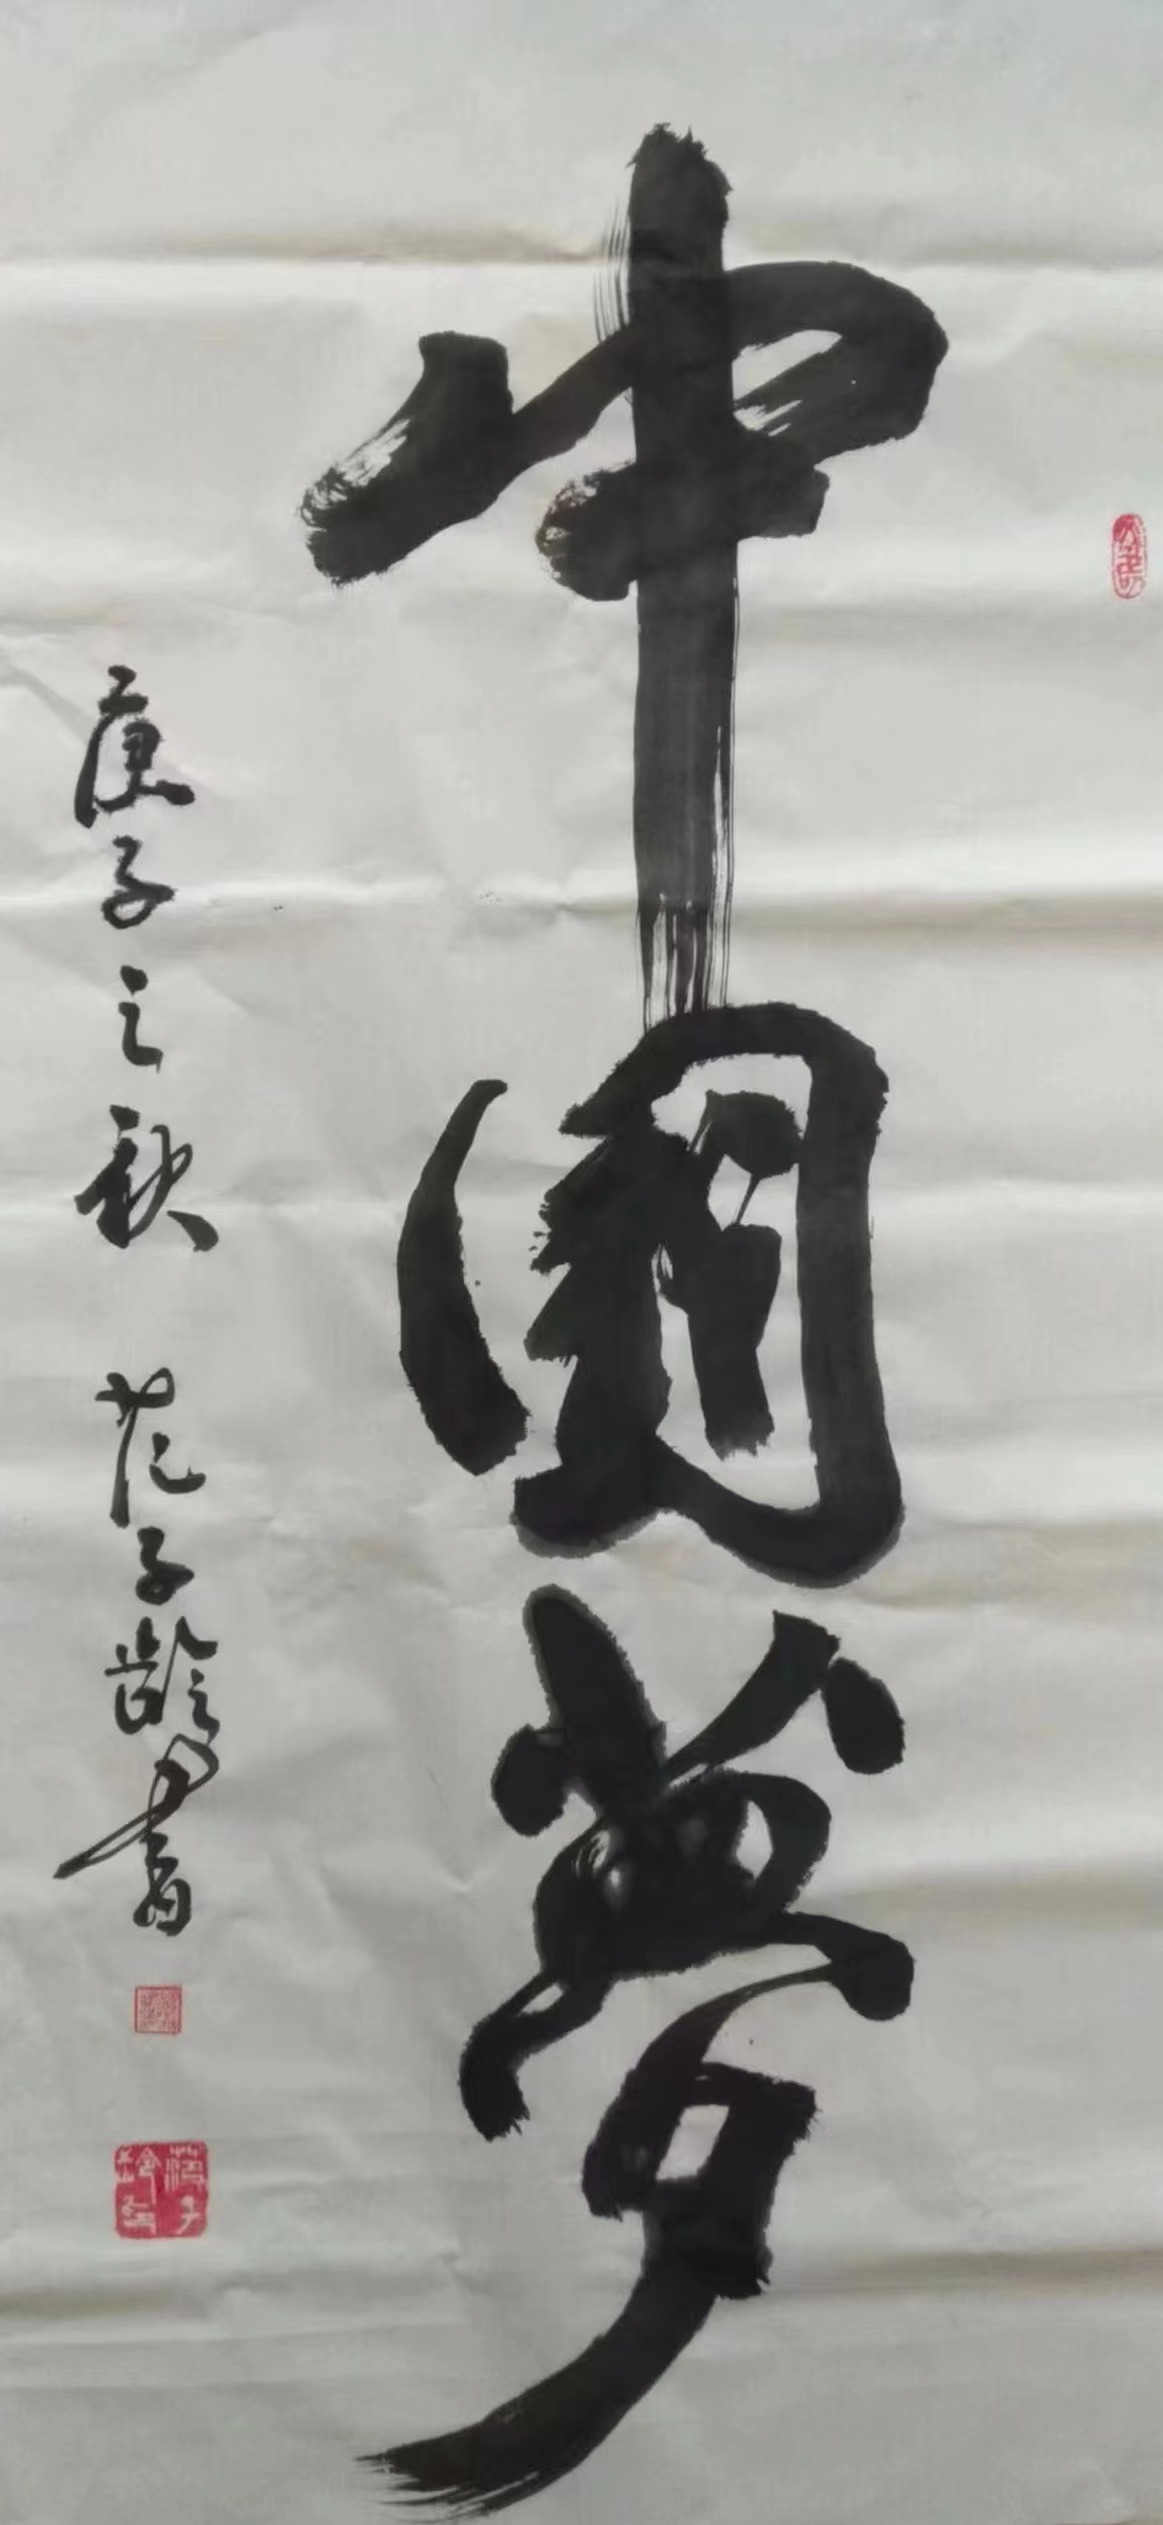 中國夢
庚子之秋 范子齡書